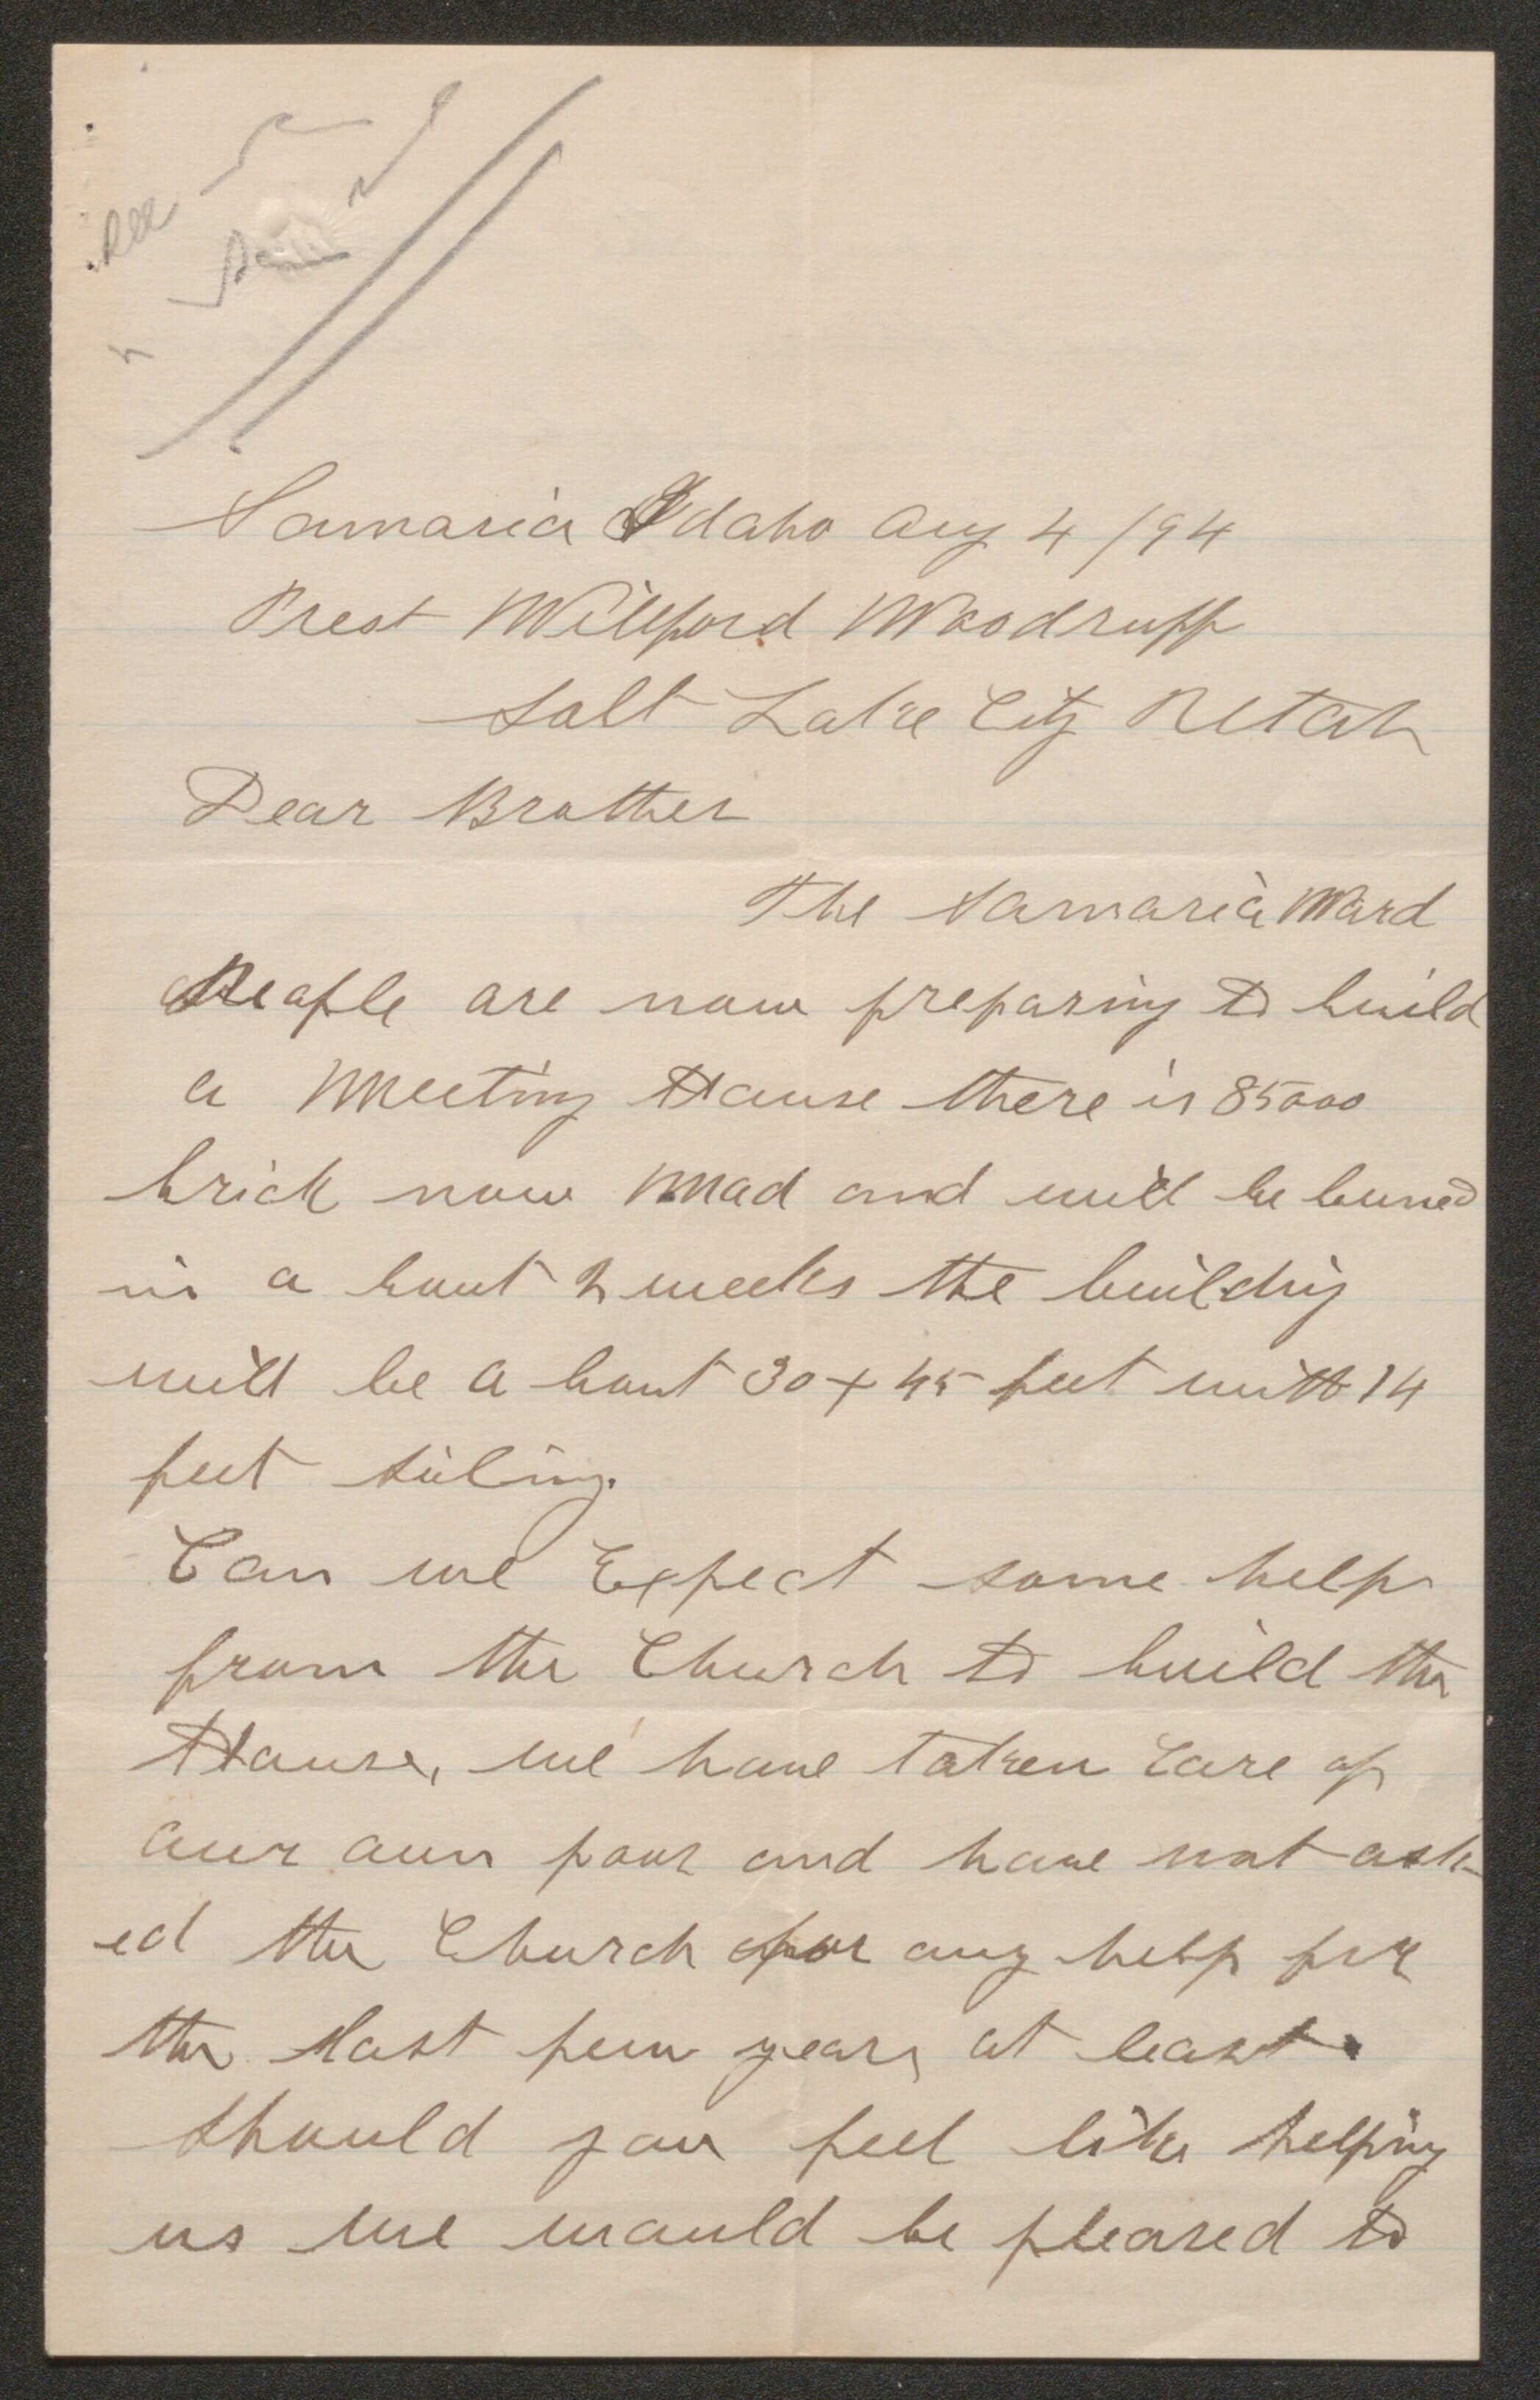 Samaria Idaho Aug 4 /94
Prest Willford Woodruff
Salt Lake City Utah
Dear Brother
The Samaria Ward
People are now preparing to build
a Meeting House there is 85000
brick now mad and will be burned
in a bout 2 weeks the building
will be a bout 30 x 45 feet with 14
feet siling.
Can we Expect some help
from the Church to build the
House, we have taken Care of
our own poor and have not ask-
ed the Church for any help for
the last few years at least.
Should you feel like helping
us we would be pleased to